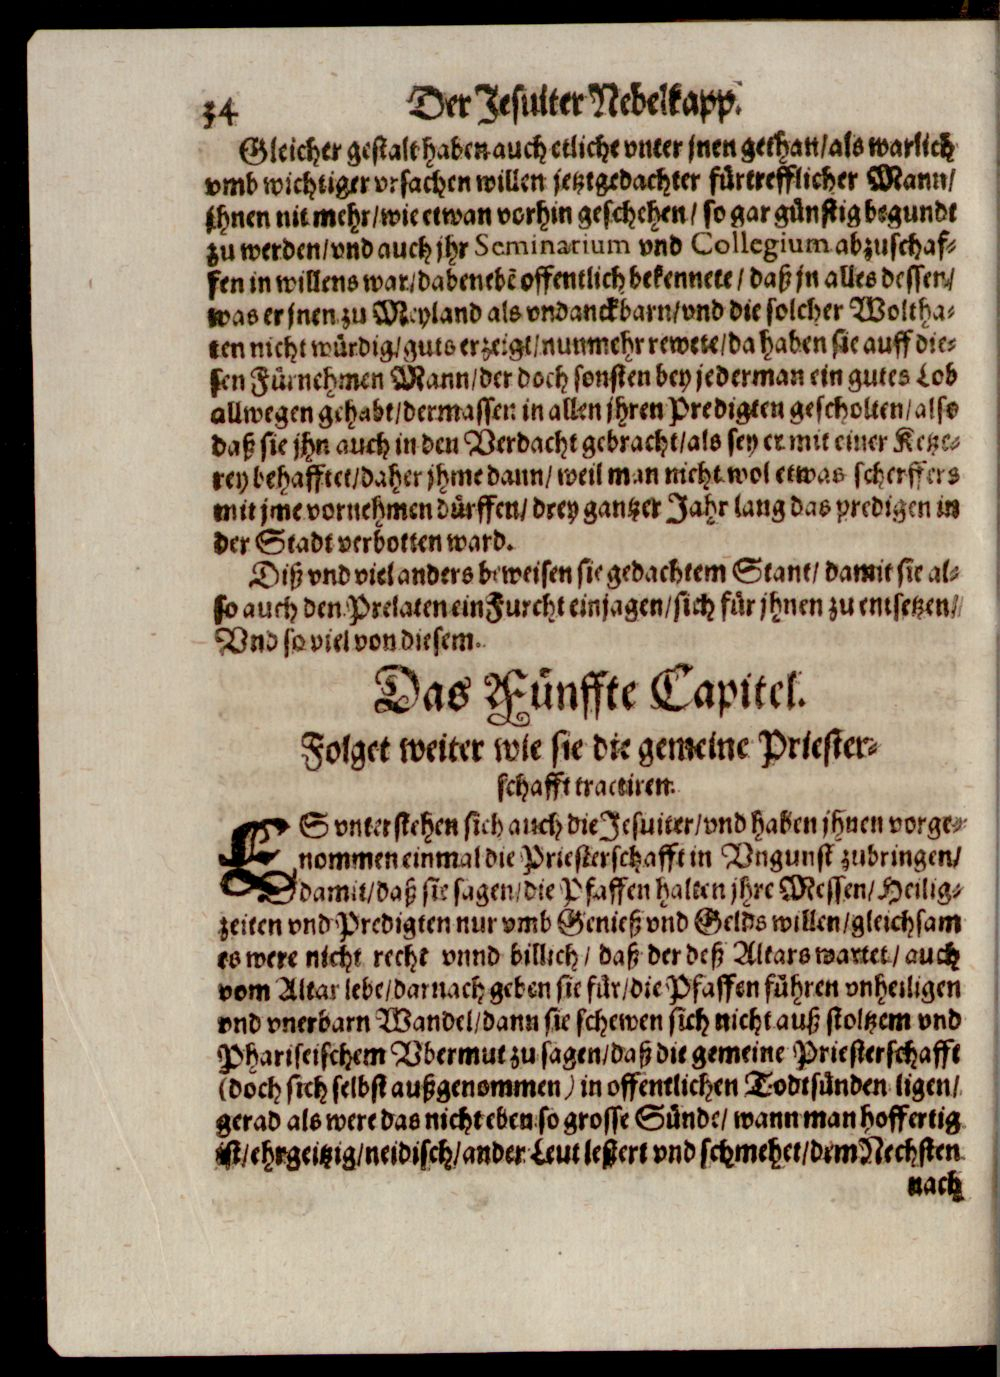 34 Der Jesuiter Nebelkapp.
Gleicher gestalt haben auch etliche vnter jnen gethan/als warlich
vmb wichtiger vrsachen willen jetztgedachter fürtrefflicher Mann/
jhnen nit mehr/wie etwan vorhin geschehen/ so gar günstig begundt
zu werden/vnd auch jhr Seminarium vnd Collegium abzuschaf-
fen in willens war/dabenebē offentlich bekennete/ daß jn alles dessen/
was er jnen zu Meyland als vndanckbarn/vnd die solcher Woltha-
ten nicht würdig/guts erzeigt/nunmehr rewete/da haben sie auff die-
sen Fürnehmen Mann/der doch sonsten bey jederman ein gutes Lob
allwegen gehabt/dermassen in allen jhren Predigten gescholten/also
daß sie jhn auch in den Verdacht gebracht/als sey er mit einer Ketze-
rey behafftet/daher jhme dann/ weil man nicht wol etwas scherffers
mit jme vornehmen dürffen/ drey gantzer Jahr lang das predigen in
der Stadt verbotten ward.
Diß vnd viel anders beweisen sie gedachtem Stant/ damit sie al-
so auch den Prelaten ein Furcht einjagen/sich für jhnen zu entsetzen/
Vnd so viel von diesem.
Das Fünffte Capitel.
Folget weiter wie sie die gemeine Priester-
schafft tractiren.
ES vnterstehen sich auch die Jesuiter/vnd haben jhnen vorge-
nommen einmal die Priesterschafft in Vngunst zubringen/
damit/daß sie sagen/die Pfaffen halten jhre Messen/Heilig-
zeiten vnd Predigten nur vmb Genieß vnd Gelds willen/gleichsam
es were nicht recht vnnd billich/ daß der deß Altars wartet/ auch
vom Altar lebe/darnach geben sie für/die Pfaffen führen vnheiligen
vnd vnerbarn Wandel/dann sie schewen sich nicht auß stoltzem vnd
Phariseischem Vbermut zu sagen/daß die gemeine Priesterschafft
(doch sich selbst außgenommen) in offentlichen Todtsünden ligen/
gerad als were das nicht eben so grosse Sünde/ wann man hoffertig
ist/ehrgeitzig/neidisch/ander Leut lestert vnd schmehet/dem Nechsten
nach